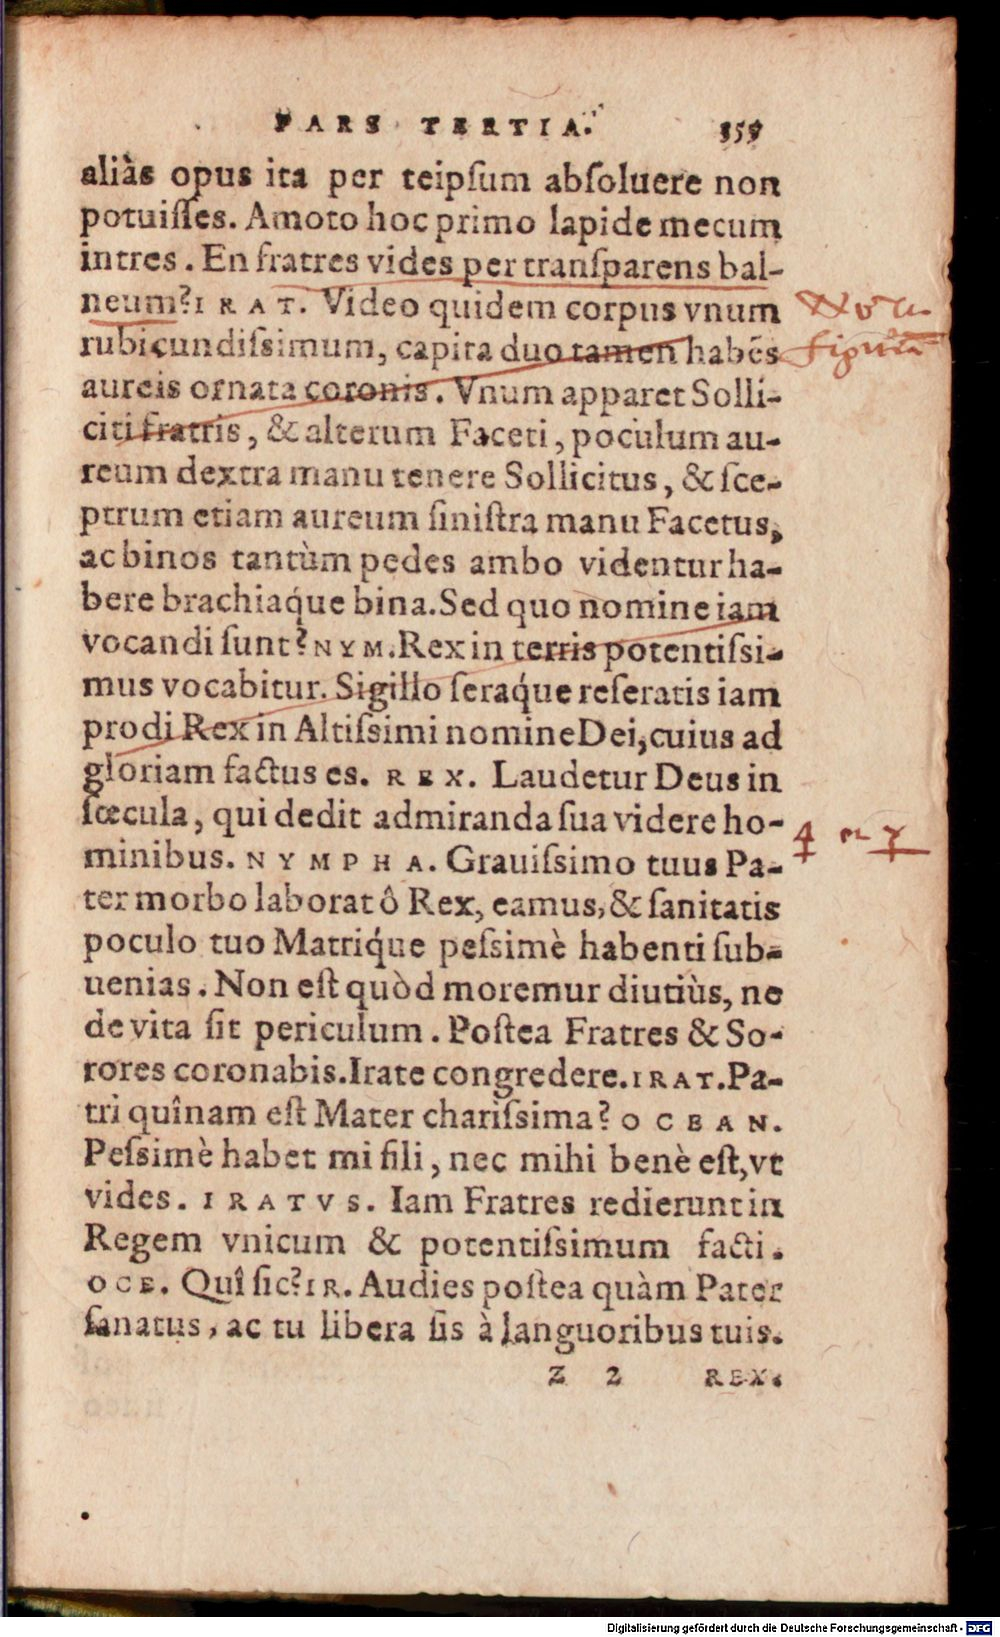 PARS TERTIA. 355
aliàs opus ita per teipſum abſoluere non
potuiſſes. Amoto hoc primo lapide mecum
intres. En fratres vides per tranſparens bal-
neum? IRAT. Video quidem corpus vnum
rubicundiſsimum, capita duo tamen habẽs
aureis ornata coronis. Vnum apparet Solli-
citi fratris, & alterum Faceti, poculum au-
reum dextra manu tenere Sollicitus, & ſce-
ptrum etiam aureum ſiniſtra manu Facetus,
ac binos tantùm pedes ambo videntur ha-
bere brachiaq́ue bina. Sed quo nomine iam
vocandi ſunt? NYM. Rex in terris potentiſsi-
mus vocabitur. Sigillo ſeraq́ue reſeratis iam
prodi Rex in Altiſsimi nomine Dei, cuius ad
gloriam factus es. REX. Laudetur Deus in
ſœcula, qui dedit admiranda ſua videre ho-
minibus. NYMPHA. Grauiſsimo tuus Pa-
ter morbo laborat ô Rex, eamus, & ſanitatis
poculo tuo Matriq́ue peſsimè habenti ſub-
uenias. Non eſt quòd moremur diutiùs, ne
de vita ſit periculum. Poſtea Fratres & So-
rores coronabis. Irate congredere. IRAT. Pa-
tri quînam eſt Mater chariſsima? OCEAN.
Peſsimè habet mi fili, nec mihi benè eſt, vt
vides. IRATVS. Iam Fratres redierunt in
Regem vnicum & potentiſsimum facti.
OCE. Quî ſic? IR. Audies poſtea quàm Pater
ſanatus, ac tu libera ſis à languoribus tuis.
Z 2 REX.
Digitalisierung gefördert durch die Deutsche Forschungsgemeinschaft - DFG